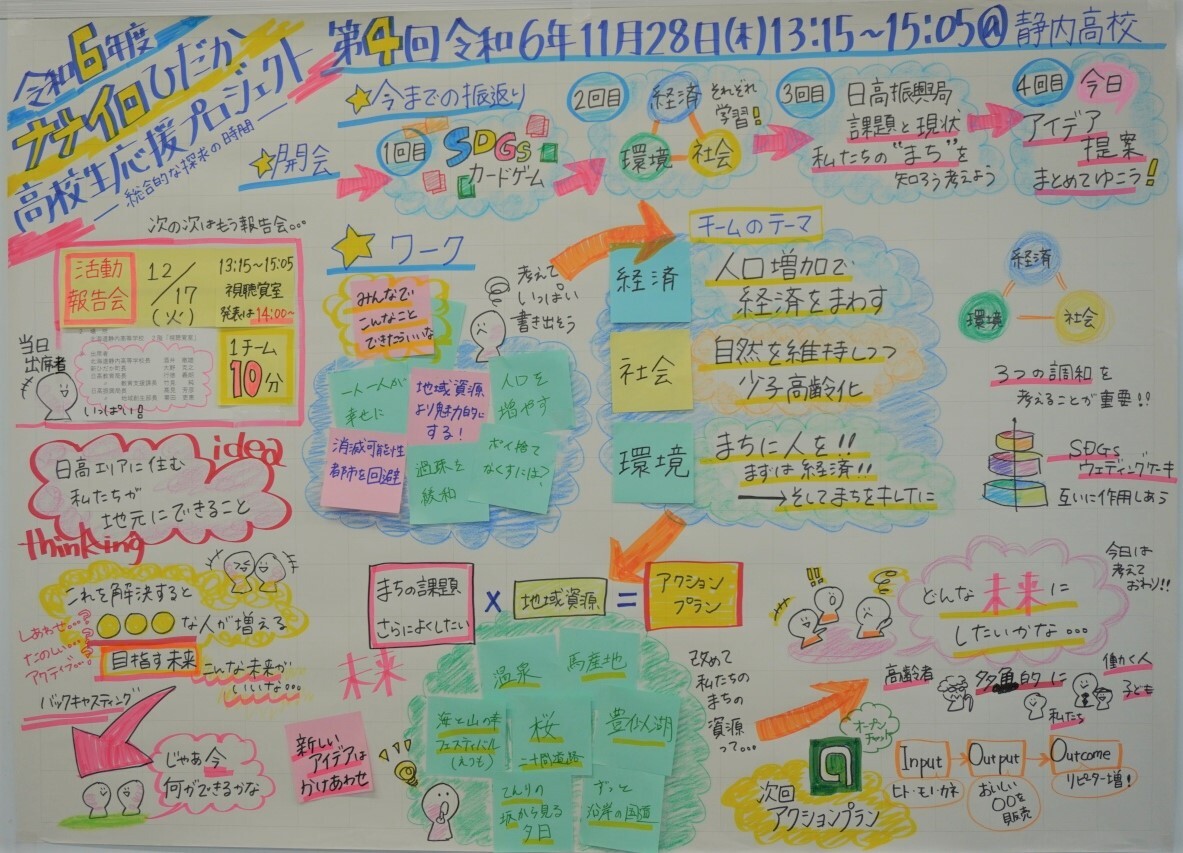 令和6年度
ナナイロひだか
高校生応援プロジェクト
―総合的な探求の時間―
第4回 令和6年11月28日(木)13:15~15:05@静内高校
開会
今までの振返り
1回目
SDGs
カードゲーム
2回目
経済
それぞれ
学習!
環境
社会
3回目
日高振興局
課題と現状
私たちの"まち"を
知ろう考えよう
4回目
今日
アイデア
提案
まとめてゆこう!
次の次はもう報告会...
活動
報告会
12/17
(火)
13:15~15:05
視聴覚室
発表は14:00~
当日
出席者
いっぱい!
1チーム
10分
ワーク
みんなで
こんなこと
できたらいいな
考えて
いっぱい
書き出そう
一人一人が
幸せに
地域資源
より魅力的に
する!
人口を
増やす
消滅可能性
都市を回避
過疎を
緩和
ポイ捨て
なくすには?
チームのテーマ
経済
人口増加で
経済をまわす
社会
自然を維持しつつ
少子高齢化
環境
まちに人を!!
まずは経済!!
→そしてまちをキレイに
経済
環境
社会
3つの調和を
考えることが重要!!
SDGs
ウェディングケーキ
互いに作用しあう
idea
日高エリアに住む
私たちが
地元にできること
thinking
これを解決すると
○○○な人が増える
しあわせ...?
たのしい...?
アクティブ...?
目指す未来
こんな未来が
いいな...
バックキャスティング
じゃあ今
何ができるかな
まちの課題
さらによくしたい
×
地域資源
=
アクション
プラン
未来
新しい
アイデアは
かけあわせ
温泉
馬産地
海と山の幸
フェスティバル
(えりも)
桜
二十間道路
豊似湖
てんりの
坂から見る
夕日
ずっと
沿岸の国道
改めて
私たちの
まちの
資源
って...
どんな未来に
したいかな...
今日は
考えて
おわり!!
高齢者
多角的に
私たち
働く人
子ども
オープン
チャット
次回
アクションプラン
Input
Output
Outcome
ヒト・モノ・カネ
おいしい
○○を
販売
リピーター増!